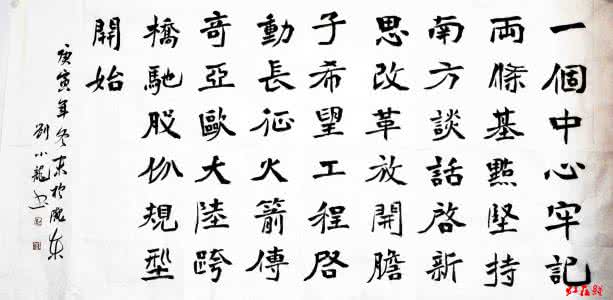 一個中心牢記
両條基點堅持
南方談話啓新
思改革放開膽
子希望工程啓
動長征火箭傳
奇亞歐大陸跨
橋馳股份規型
開始
庚寅年冬末於隴東
劉小龍書